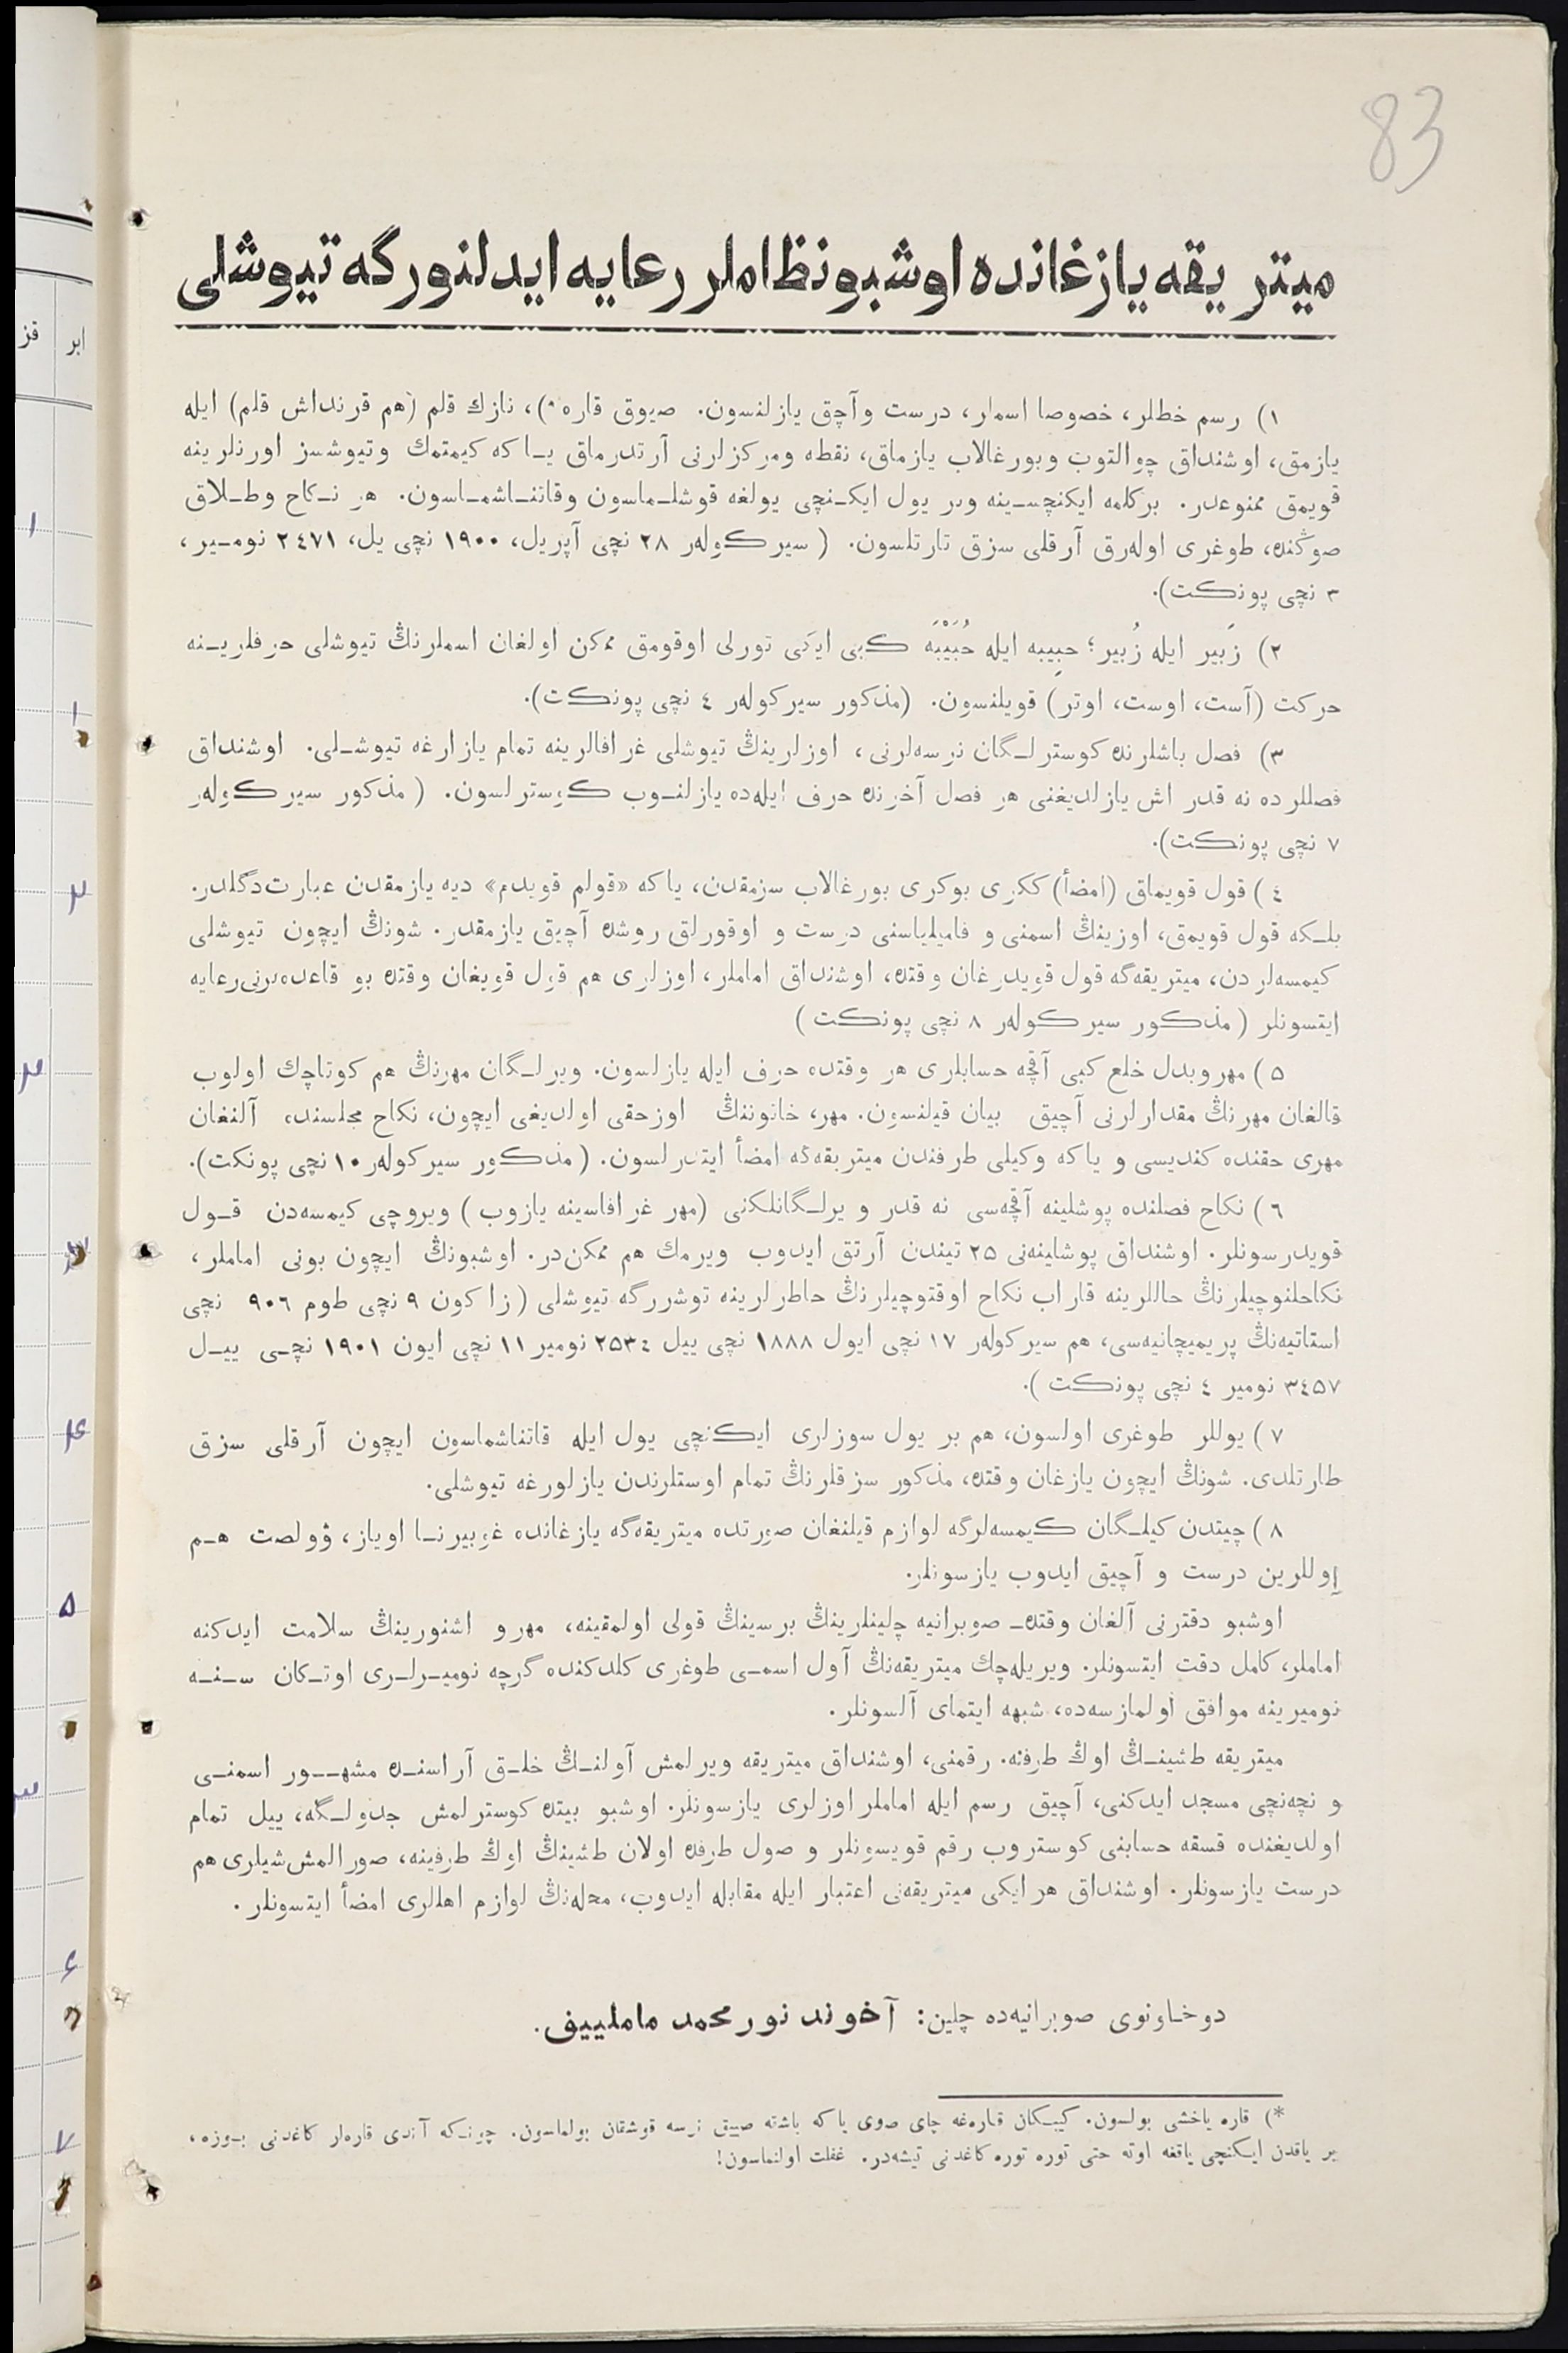 83
ميتريقه يازغانده اوشبو نظاملر رعايه ايدلنورگه تيوشلى
١) رسم خطلر، خصوصا اسملر، درست وآچق يازلنسون. صيوق قاره *)، نازك قلم (هم قرنداش قلم) ايله
يازمق، اوشنداق چوالتوب وبورغالاب يازماق، نقطه ومركزلرنى آرتدرماق يـا كه كيمتمك وتيوشسز اورنلرينه
قويمق ممنوعدر. بركلمه ايكنچسـينه وبر يول ايكـنچى يولغه قوشلـماسون وقاتنـاشمـاسون. هر نـكاح وطـلاق
صوڭنده، طوغرى اولەرق آرقلى سزق تارتلسون. (سيركولەر ٢٨ نچى آپريل، ١٩٠٠ نچى يل، ٢٤٧١ نومـير،
٣ نچى پونكت).
٢) زَبير ايله زُبير؛ حبِيبه ايله حُبَيْبَه كبى ايكى تورلى اوقومق ممكن اولغان اسملرنڭ تيوشلى حرفلريـنه
حركت (آست، اوست، اوتر) قويلنسون. (مذكور سيركولەر ٤ نچى پونكت).
٣) فصل باشلرنده كوسترلـگان نرسەلرنى، اوزلرينڭ تيوشلى غرافالرينه تمام يازارغه تيوشـلى. اوشنداق
فصللرده نه قدر اش يازلديغنى هر فصل آخرنده حرف ايلەده يازلنـوب كوسترلسون. (مذكور سيركولەر
٧ نچى پونكت).
٤) قول قويماق (امضأ) ككرى بوكرى بورغالاب سزمقدن، ياكه «قولم قويدم» ديه يازمقدن عبارت دگلدر.
بلـكه قول قويمق، اوزينڭ اسمنى و فاميلياسنى درست و اوقورلق روشده آچيق يازمقدر. شونڭ ايچون تيوشلى
كيمسەلردن، ميتريقەگه قول قويدرغان وقتده، اوشنداق اماملر، اوزلرى هم قول قويغان وقتده بو قاعدەلرنى رعايه
ايتسونلر (مذكور سيركولەر ٨ نچى پونكت)
٥) مهروبدل خلع كبى آقچه حسابلرى هر وقتده حرف ايله يازلسون. ويرلـگان مهرنڭ هم كوتاچك اولوب
قالغان مهرنڭ مقدارلرنى آچيق بيان قيلنسون. مهر، خاتوننڭ اوزحقى اولديغى ايچون، نكاح مجلسنده، آلنغان
مهرى حقنده كنديسى و ياكه وكيلى طرفندن ميتريقەگه امضأ ايتدرلسون. (مذكور سيركولەر ١٠ نچى پونكت).
٦) نكاح فصلنده پوشلينه آقچەسى نه قدر ويرلـگانلكنى (مهر غرافاسينه يازوب) ويروچى كيمسەدن قـول
قويدرسونلر. اوشنداق پوشلينەنى ٢٥ تيندن آرتق ايدوب ويرمك هم ممكن در. اوشبونڭ ايچون بونى اماملر،
نكاحلنوچيلرنڭ حاللرينه قاراب نكاح اوقتوچيلرنڭ خاطرلرينه توشررگه تيوشلى (زاكون ٩ نچى طوم ٩٠٦ نچى
استاتيەنڭ پريميچانيەسى، هم سيركولەر ١٧ نچى ايول ١٨٨٨ نچى ييل ٢٥٣٤ نومير ١١ نچى ايون ١٩٠١ نچـى ييـل
٣٤٥٧ نومير ٤ نچى پونكت).
٧) يوللر طوغرى اولسون، هم بر يول سوزلرى ايكنچى يول ايله قاتناشماسون ايچون آرقلى سزق
طارتلدى. شونڭ ايچون يازغان وقتده، مذكور سزقلرنڭ تمام اوستلرندن يازلورغه تيوشلى.
٨) چيتدن كيلـگان كيمسەلرگه لوازم قيلنغان صورتده ميتريقەگه يازغانده غوبيرنـا اوياز، ۋولصت هـم
اِوللرين درست و آچيق ايدوب يازسونلر.
اوشبو دفترنى آلغان وقتدهـ صوبرانيه چلينلرينڭ برسينڭ قولى اولمقينه، مهرو اشنورينڭ سلامت ايدكنه
اماملر، كامل دقت ايتسونلر. ويريلەچك ميتريقەنڭ آول اسمـى طوغرى كلدكنده گرچه نوميـرلـرى اوتـكان سـنـه
نوميرينه موافق اولمازسەده، شبهه ايتماى آلسونلر.
ميتريقه طشينـڭ اوڭ طرفنه. رقمنى، اوشنداق ميتريقه ويرلمش آولنـڭ خلـق آراسنـده مشهـور اسمنـى
و نچەنچى مسجد ايدكنى، آچيق رسم ايله اماملر اوزلرى يازسونلر. اوشبو بيتده كوسترلمش جدولـگه، ييل تمام
اولديغنده قسقه حسابنى كوستروب رقم قويسونلر و صول طرفده اولان طشينڭ اوڭ طرفينه، صورالمش شيلرى هم
درست يازسونلر. اوشنداق هر ايكى ميتريقەنى اعتبار ايله مقابله ايدوب، محلەنڭ لوازم اهللرى امضأ ايتسونلر.
دوخاونوى صوبرانيەده چلين: آخوند نورمحمد ماملييف.
*) قاره ياخشى بولسون. كيبـكان قارەغه چاى صوى ياكه باشقه صييق نرسه قوشقان بولماسون. چونـكه آندى قارەلر كاغدنى بـوزه،
بر ياقدن ايكنچى ياقغه اوته حتى توره توره كاغدنى تيشەدر. غفلت اولنماسون!